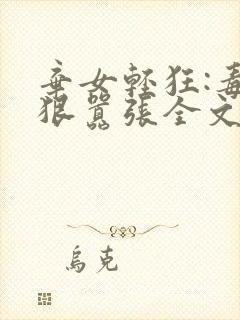 棄女輕狂:毒
狠囂張全文
烏克